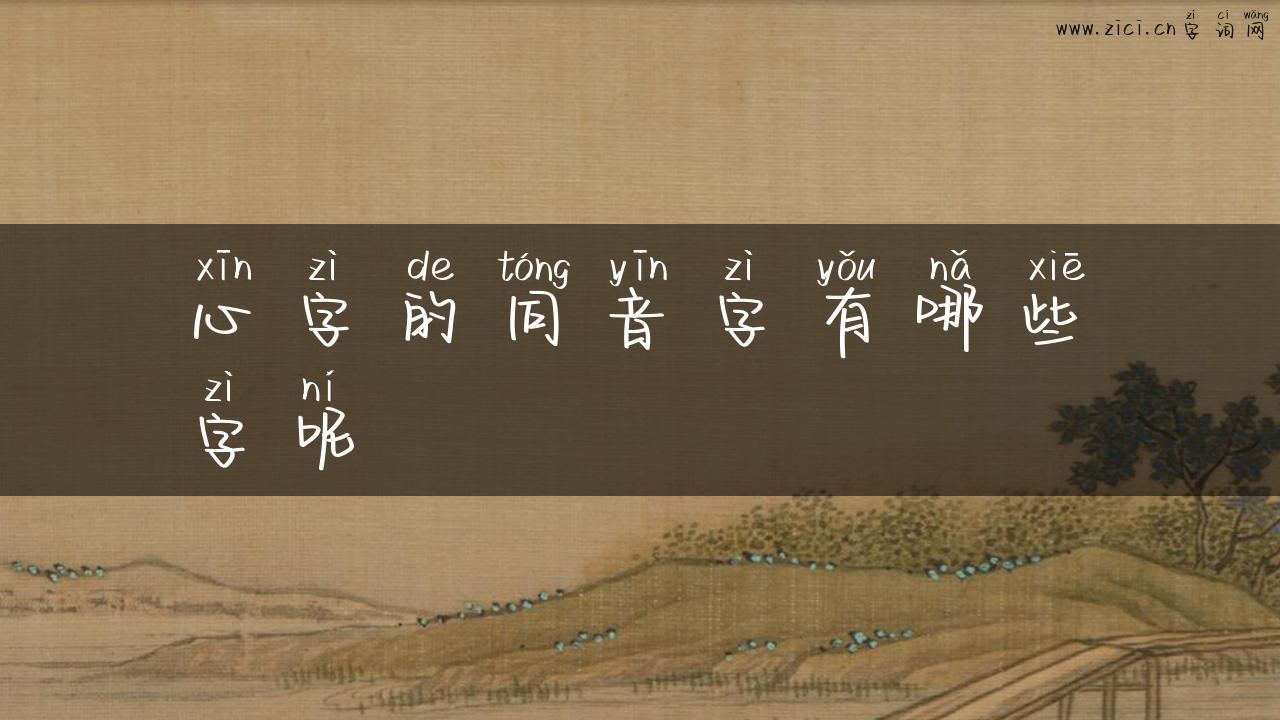 zì cí wǎng
www.zici.cn字词网
xīn zì de tóng yīn zì yǒu nǎ xiē
心字的同音字有哪些
zì ní
字呢